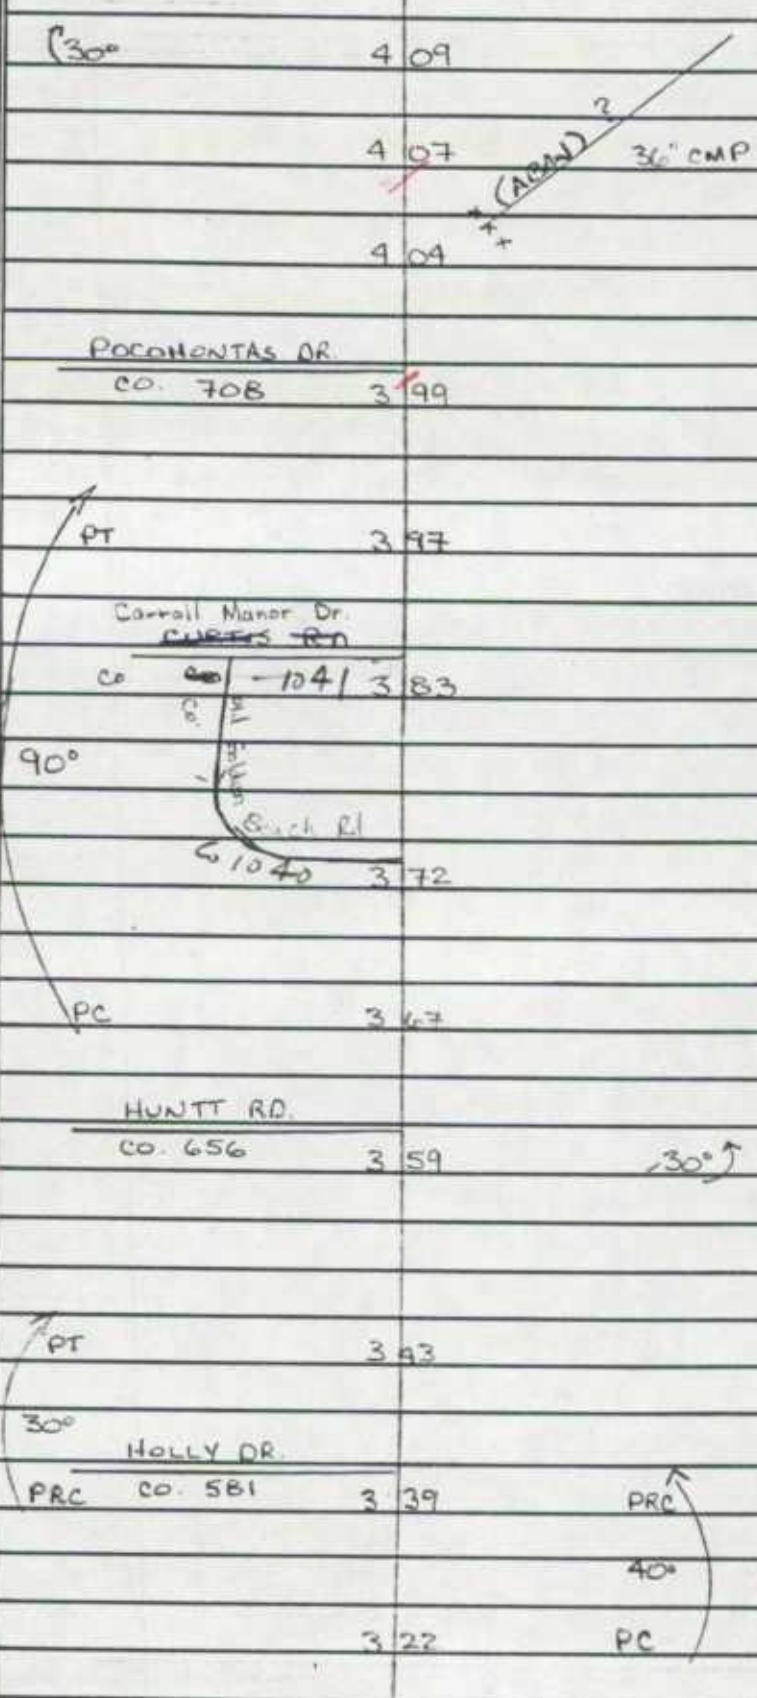 30° 4 09
4 07 (ABAN) ? 36" CMP
4 04
POCOHONTAS DR.
CO. 708 3 99
PT 3 97
Carroll Manor Dr.
CURTIS
Co 1041 3 83
Co.
90°
Rd
Co 1040 3 72
PC 3 67
HUNTT RD.
CO. 656 3 59 30°
PT 3 43
30°
HOLLY DR.
PRC CO. 581 3 39 PRC
40°
3 22 PC